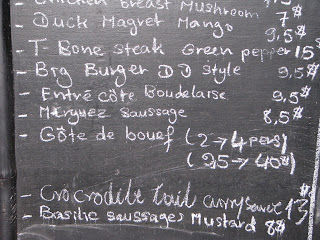 - Chicken breast Mushroom 7$
- Duck Magret Mango 9,5$
- T-Bone steak Green pepper 15
- Big Burger DD style 9,5$
- Entré côte Boudelaise 9,5$
- Merguez Saussage 8,5$
- Gôte de bouef (2→4 pers)
(25→40$)
- Crocrodile tail curry sauce 13$
- Basilic saussages Mustard 8$